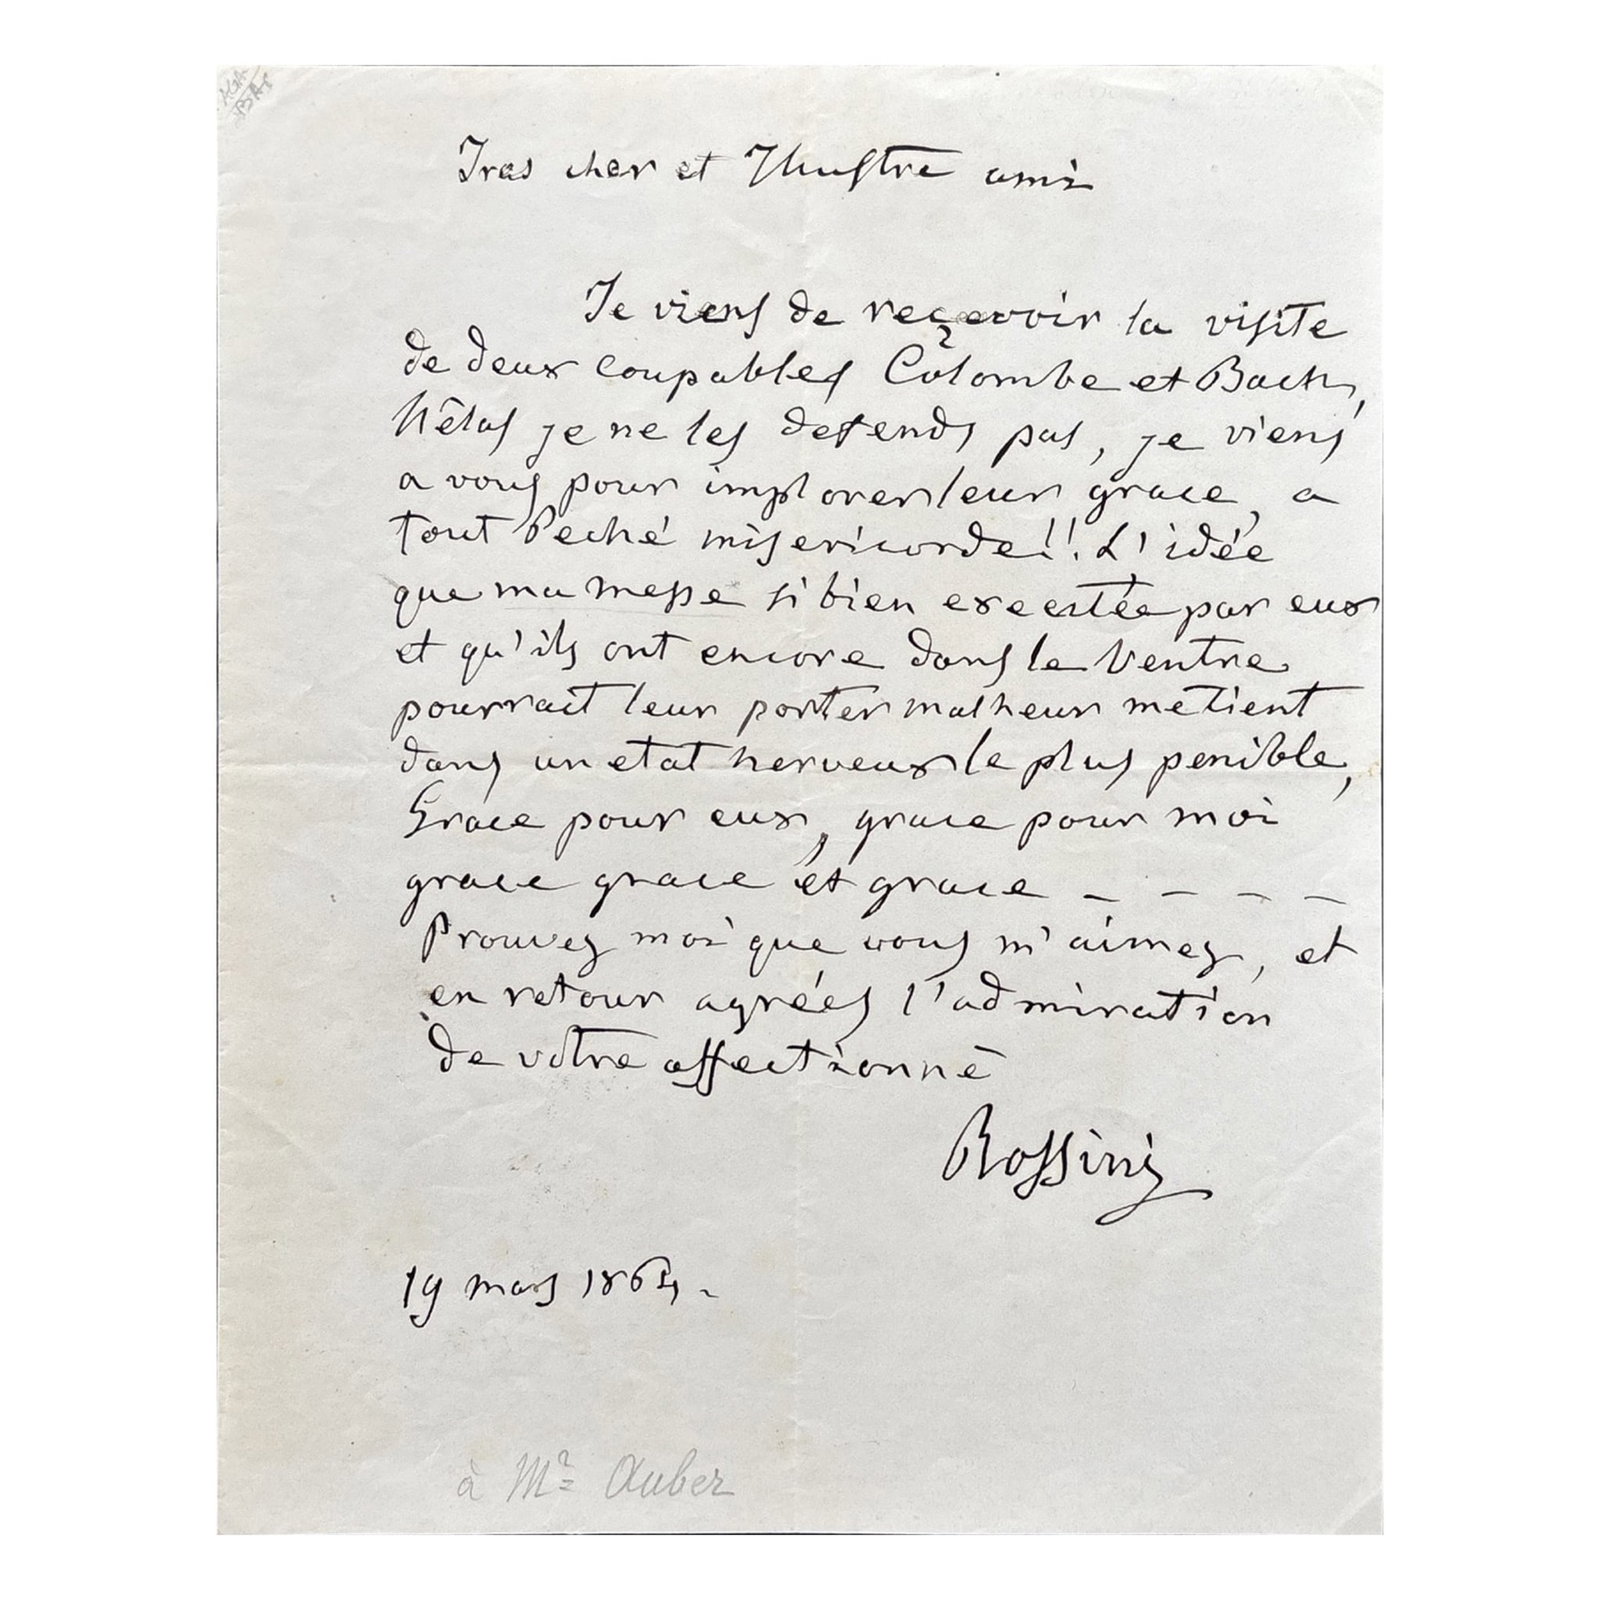 Tres cher et Illustre ami
Je viens de reçevoir la visite
de deux coupables Colombe et Bach,
hélas je ne les defends pas, je viens
a vous pour implorer leur grace, a
tout Peché misericorde!! L'idée
que ma messe si bien execetée par eux
et qu'ils ont encore dans le Ventre
pourrait leur porter malheur me tient
dans un etat nerveux le plus penible,
Grace pour eux, grace pour moi
grace grace et grace _ _ _ _
Prouvez moi que vous m'aimez, et
en retour agrées l'admiration
de votre affectionné
Rossini
19 mars 1864.
à Mr Auber